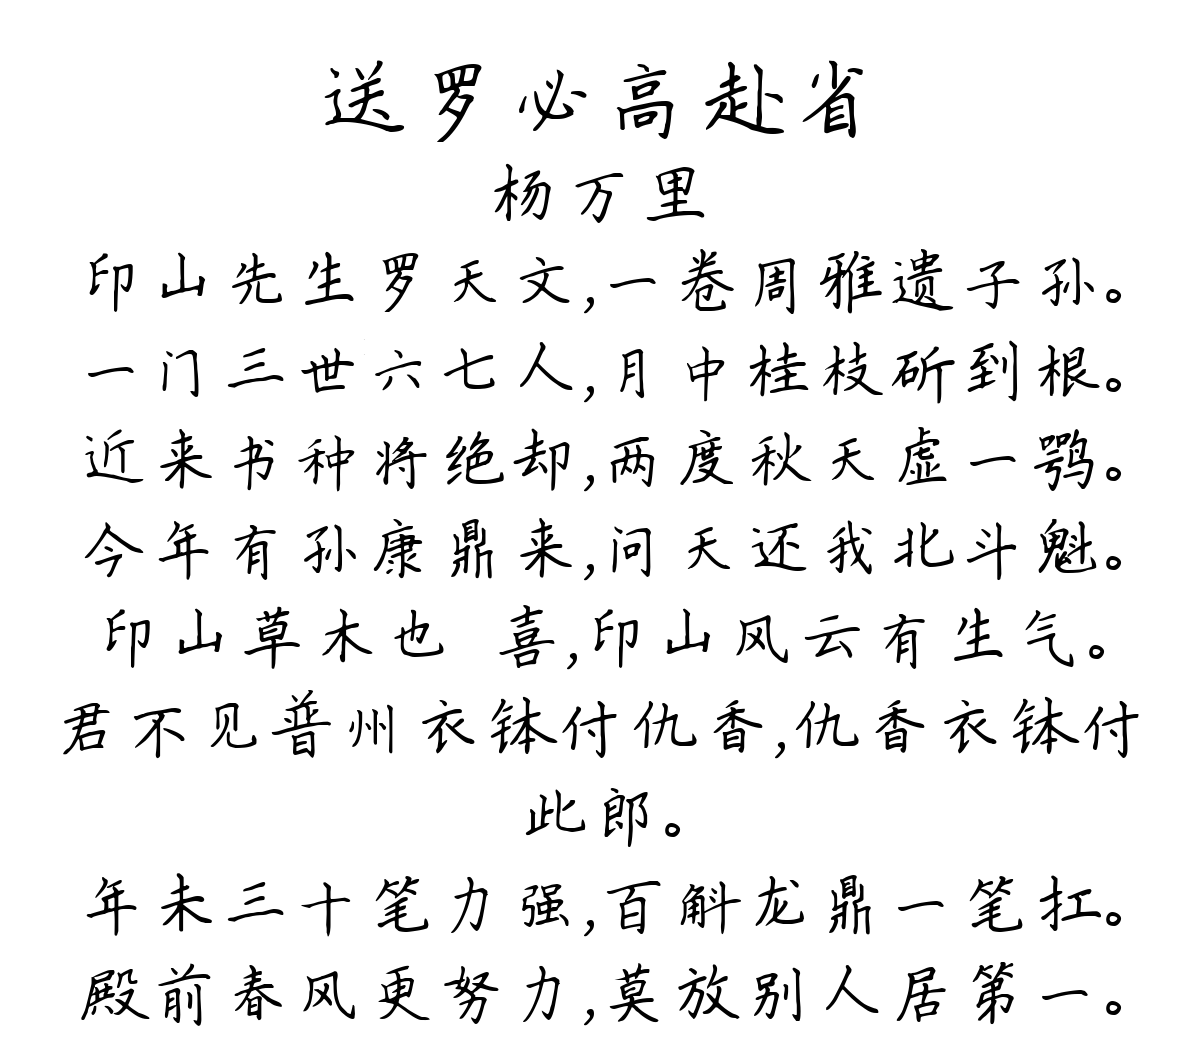 送罗必高赴省
杨万里
印山先生罗天文,一卷周雅遗子孙。
一门三世六七人,月中桂枝斫到根。
近来书种将绝却,两度秋天虚一鹗。
今年有孙康鼎来,问天还我北斗魁。
印山草木也 喜,印山风云有生气。
君不见普州衣钵付仇香,仇香衣钵付
此郎。
年未三十笔力强,百斛龙鼎一笔扛。
殿前春风更努力,莫放别人居第一。